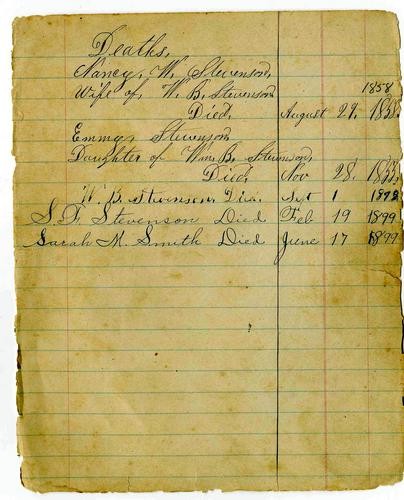 Deaths,
Nancy, W. Stevenson,
Wife of, W. B. Stevenson 1858
Died, August 29. 1858.
Emma, Stevenson,
Daughter of Wm. B. Stevenson,
Died, Nov 28.
W. B. Stevenson. Die. Sept 1
S. F. Stevenson Died Feb 19 1899
Sarah M. Smith Died June 17 1899